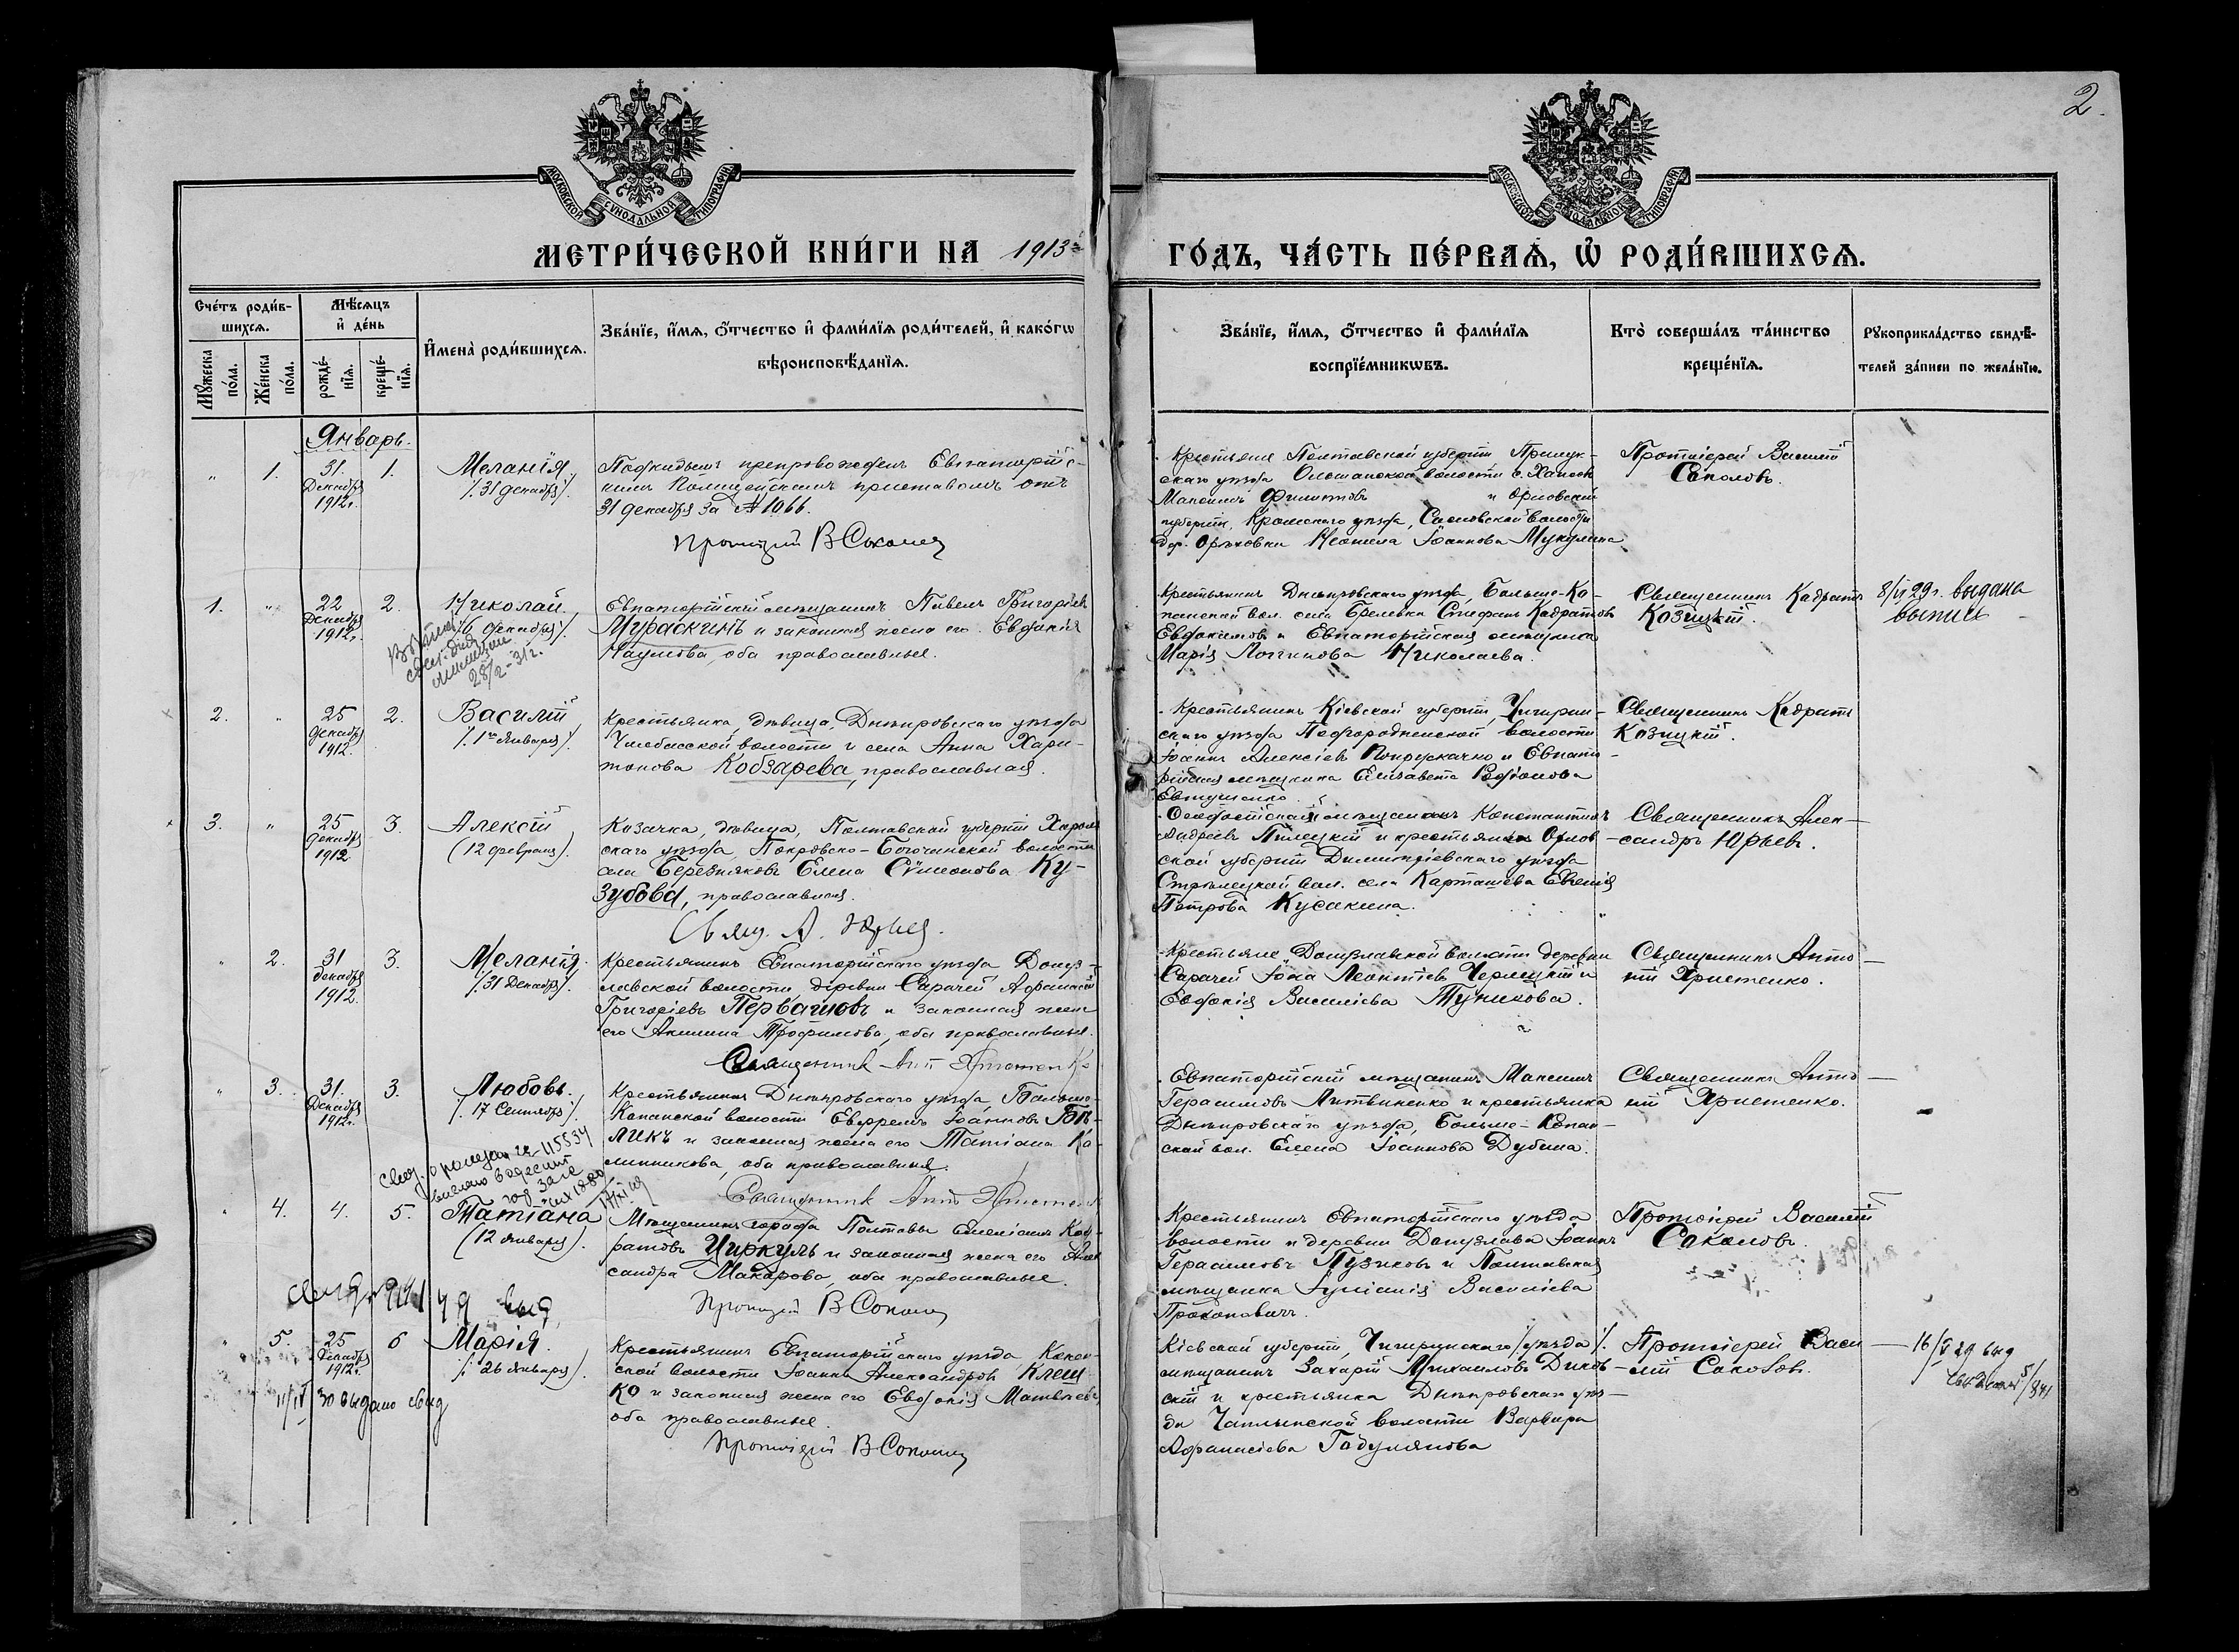 2.
МОСКОВСКОЙ СѴНОДАЛЬНОЙ ТИПОГРАФІИ
МОСКОВСКОЙ СѴНОДАЛЬНОЙ ТИПОГРАФІИ
МЕТРИ́ЧЕСКОЙ КНИ́ГИ НА 1913й
ГО́ДЪ, ЧА́СТЬ ПЕ́РВАѦ, Ѡ҆ РОДИ́ВШИХСѦ.
Сче́тъ роди́в-
шихсѧ.
Мꙋ́жеска по́ла.
Же́нска по́ла.
Мѣ́сѧцъ
и҆ де́нь
рожде́-
нїѧ.
креще́-
нїѧ.
И҆мена̀ роди́вшихсѧ.
Зва́нїе, и҆́мѧ, ѻ҆́тчество и҆ фами́лїѧ роди́телей, и҆ како́гѡ
вѣроисповѣ́данїѧ.
Зва́нїе, и҆́мѧ, ѻ҆́тчество и҆ фами́лїѧ
воспрїе́мникѡвъ.
Кто̀ соверша́лъ та́инство
креще́нїѧ.
Рꙋкоприкла́дство свидѣ́-
телей за́писи по жела́нїю.
Январь.
" 1. 31. Декабря 1912г. 1.
Меланія
/. 31 декабря /.
Подкидышъ препровожденъ Евпаторійс-
кимъ Полицейскимъ приставомъ отъ
31 декабря за № 1066.
Протоіерей В Соколов
Крестьяне Полтавской губерніи Прилук-
скаго уѣзда Ольшанской волости с.
Максимъ Филипповъ и Орловской
губерніи, Кромскаго уѣзда, волости
дер. Орѣховки Неонила Іоаннова
Протоіерей Василій
Соколовъ.
1. " 22 Декабря 1912г. 2.
Николай
/. 6 декабря /.
28/2-31г.
Евпаторійскій мѣщанинъ Павелъ Григорьев
Мураскинъ и законная жена его Евдокія
Наумова, оба православные.
Крестьянинъ Днѣпровскаго уѣзда, Больше-Ко-
панской вол. села Бреловка Стефанъ Кадратовъ
Евдокимовъ и Евпаторійская мѣщанка
Марія Логгинова Николаева.
Священникъ Кадратъ
Козицкій.
8/IV 29г. выдана
выпись
2. " 25 Декабря 1912. 2.
Василій
/. 1го Января /.
Крестьянка, дѣвица, Днѣпровскаго уѣзда
Чалбасской волости и села Анна Хари-
тонова Кобзарева, православная.
Крестьянинъ Кіевской губерніи, Чигирин-
скаго уѣзда Подгородненской волости
Іоаннъ Алексіевъ и Евпато-
рійская мѣщанка Елизавета Родіонова
Евтушенко.
Священникъ Кадратъ
Козицкій.
3. " 25 Декабря 1912. 3.
Алексій
(12 февраля).
Козачка, дѣвица, Полтавской губерніи Хороль
скаго уѣзда, волости
села Березняковъ Елена Сѵмеонова Ку-
зубова, православная.
Свящ. А. Юрьев.
Ѳеодосійскій мѣщанинъ Константинъ
Андреевъ Пилецкій и крестьянка Орлов-
ской губерніи Димитріевскаго уѣзда
Стрѣлецкой вол. села Карташева Евгенія
Петрова Кусакина.
Священникъ Алек-
сандръ Юрьевъ.
" 2. 31 Декабря 1912. 3.
Меланія
/. 31 Декабря /.
Крестьянинъ Евпаторійскаго уѣзда Донуз-
лавской волости деревни Сарачей Афанасій
Григоріевъ и законная жена
его Акилина Трофимова, оба православные.
Крестьяне Донузлавской волости деревни
Сарачей Іона Леонтіевъ Черлецкій и
Евдокія Василіева Туникова.
Священникъ Анто-
ній Христенко.
" 3. 31. Декабря 1912г. 3.
Любовь.
/. 17 Сентября /.
Крестьянинъ Днѣпровскаго уѣзда Больше-
Копанской волости Евфремъ Іоанновъ Бѣ-
ликъ и законная жена его Татіана Ка-
линникова, оба православные.
Евпаторійскій мѣщанинъ Максимъ
Герасимовъ Литвиненко и крестьянка
Днѣпровскаго уѣзда, Больше-Копан-
ской вол. Елена Іоаннова Дубина.
Священникъ Анто-
ній Христенко.
" 4. 4. 5.
Татіана
(12 января).
Мѣщанинъ города Полтавы Емеліанъ Код-
ратовъ Циркуль и законная жена его Алек
сандра Макарова, оба православные.
Протоіерей В Соколов
Крестьянинъ Евпаторійскаго уѣзда
волости и деревни Донузлава Іоаннъ
Герасимовъ Пузиковъ и Полтавская
мѣщанка Іуліанія Василіева
Прокоповичъ.
Протоіерей Василій
Соколовъ.
" 5. 25 Декабря 1912г. 6
Марія
/. 26 Января /.
30 выдано свид
Крестьянинъ Евпаторійскаго уѣзда
ской волости Іоаннъ Александровъ Клещ
ко и законная жена его Евдокія Матвѣева,
оба православные.
Протоіерей В Соколов
Кіевской губерніи, Чигиринскаго /уѣзда/.
мѣщанинъ Захарій Михаиловъ Диков-
скій и крестьянка Днѣпровскаго уѣз-
да Чаплинской волости Варвара
Афанасіева
Протоіерей Васи-
лій Соколовъ.
16/V 29 выд